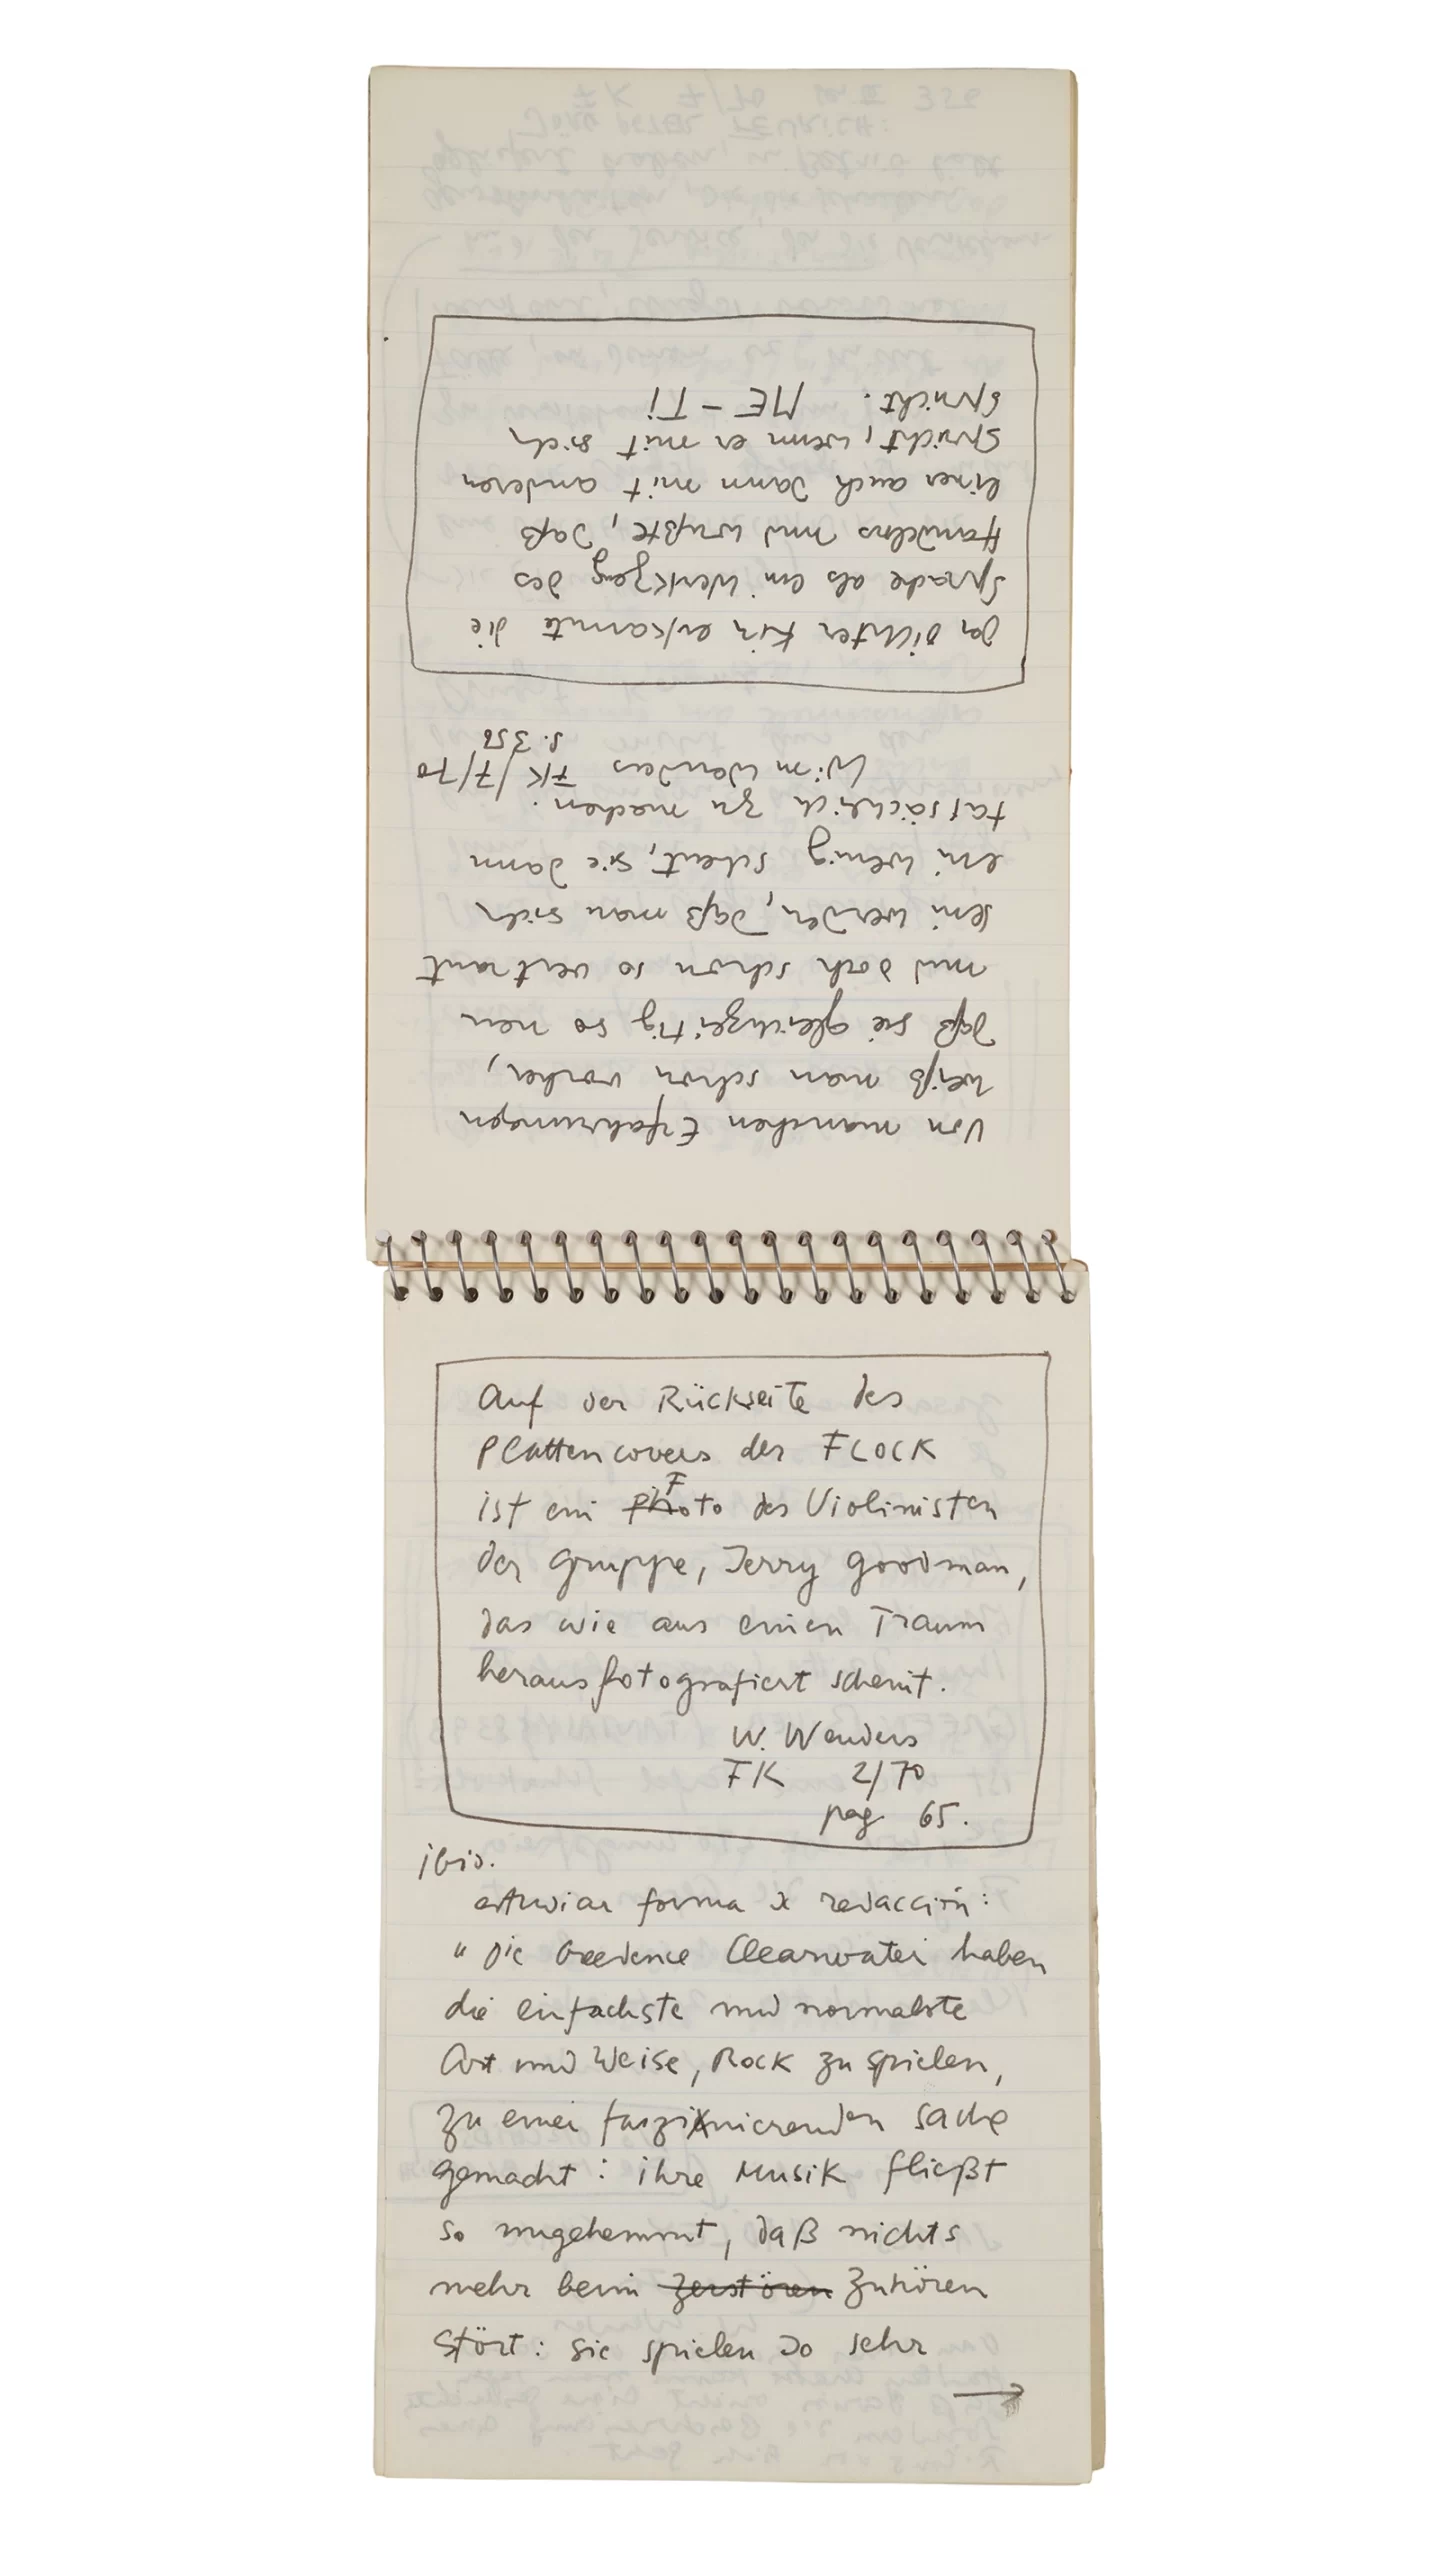 Von manchen Erfahrungen
weiß man schon vorher,
daß sie gleichzeitig so neu
und doch schon so vertraut
sein werden, daß man sich
ein wenig scheut, sie dann
tatsächlich zu machen.
Wim Wenders FK/7/70
S. 356
Der Dichter Kin erkannte die
Sprache als ein Werkzeug des
Handelns und wußte, daß
einer auch dann mit anderen
spricht, wenn er mit sich
spricht. ME-TI
Auf der Rückseite des
Plattencovers der FLOCK
ist ein Foto des Violinisten
der Gruppe, Jerry Goodman,
das wie aus einen Traum
herausfotografiert scheint.
W. Wenders
FK 2/70
pag 65.
ibid.
estudiar forma x redacción:
"Die Creedence Clearwater haben
die einfachste und normalste
Art und Weise, Rock zu spielen,
zu einer faszinierenden Sache
gemacht: ihre Musik fließt
so ungehemmt, daß nichts
mehr beim zerstören zuhören
stört: sie spielen so sehr
→